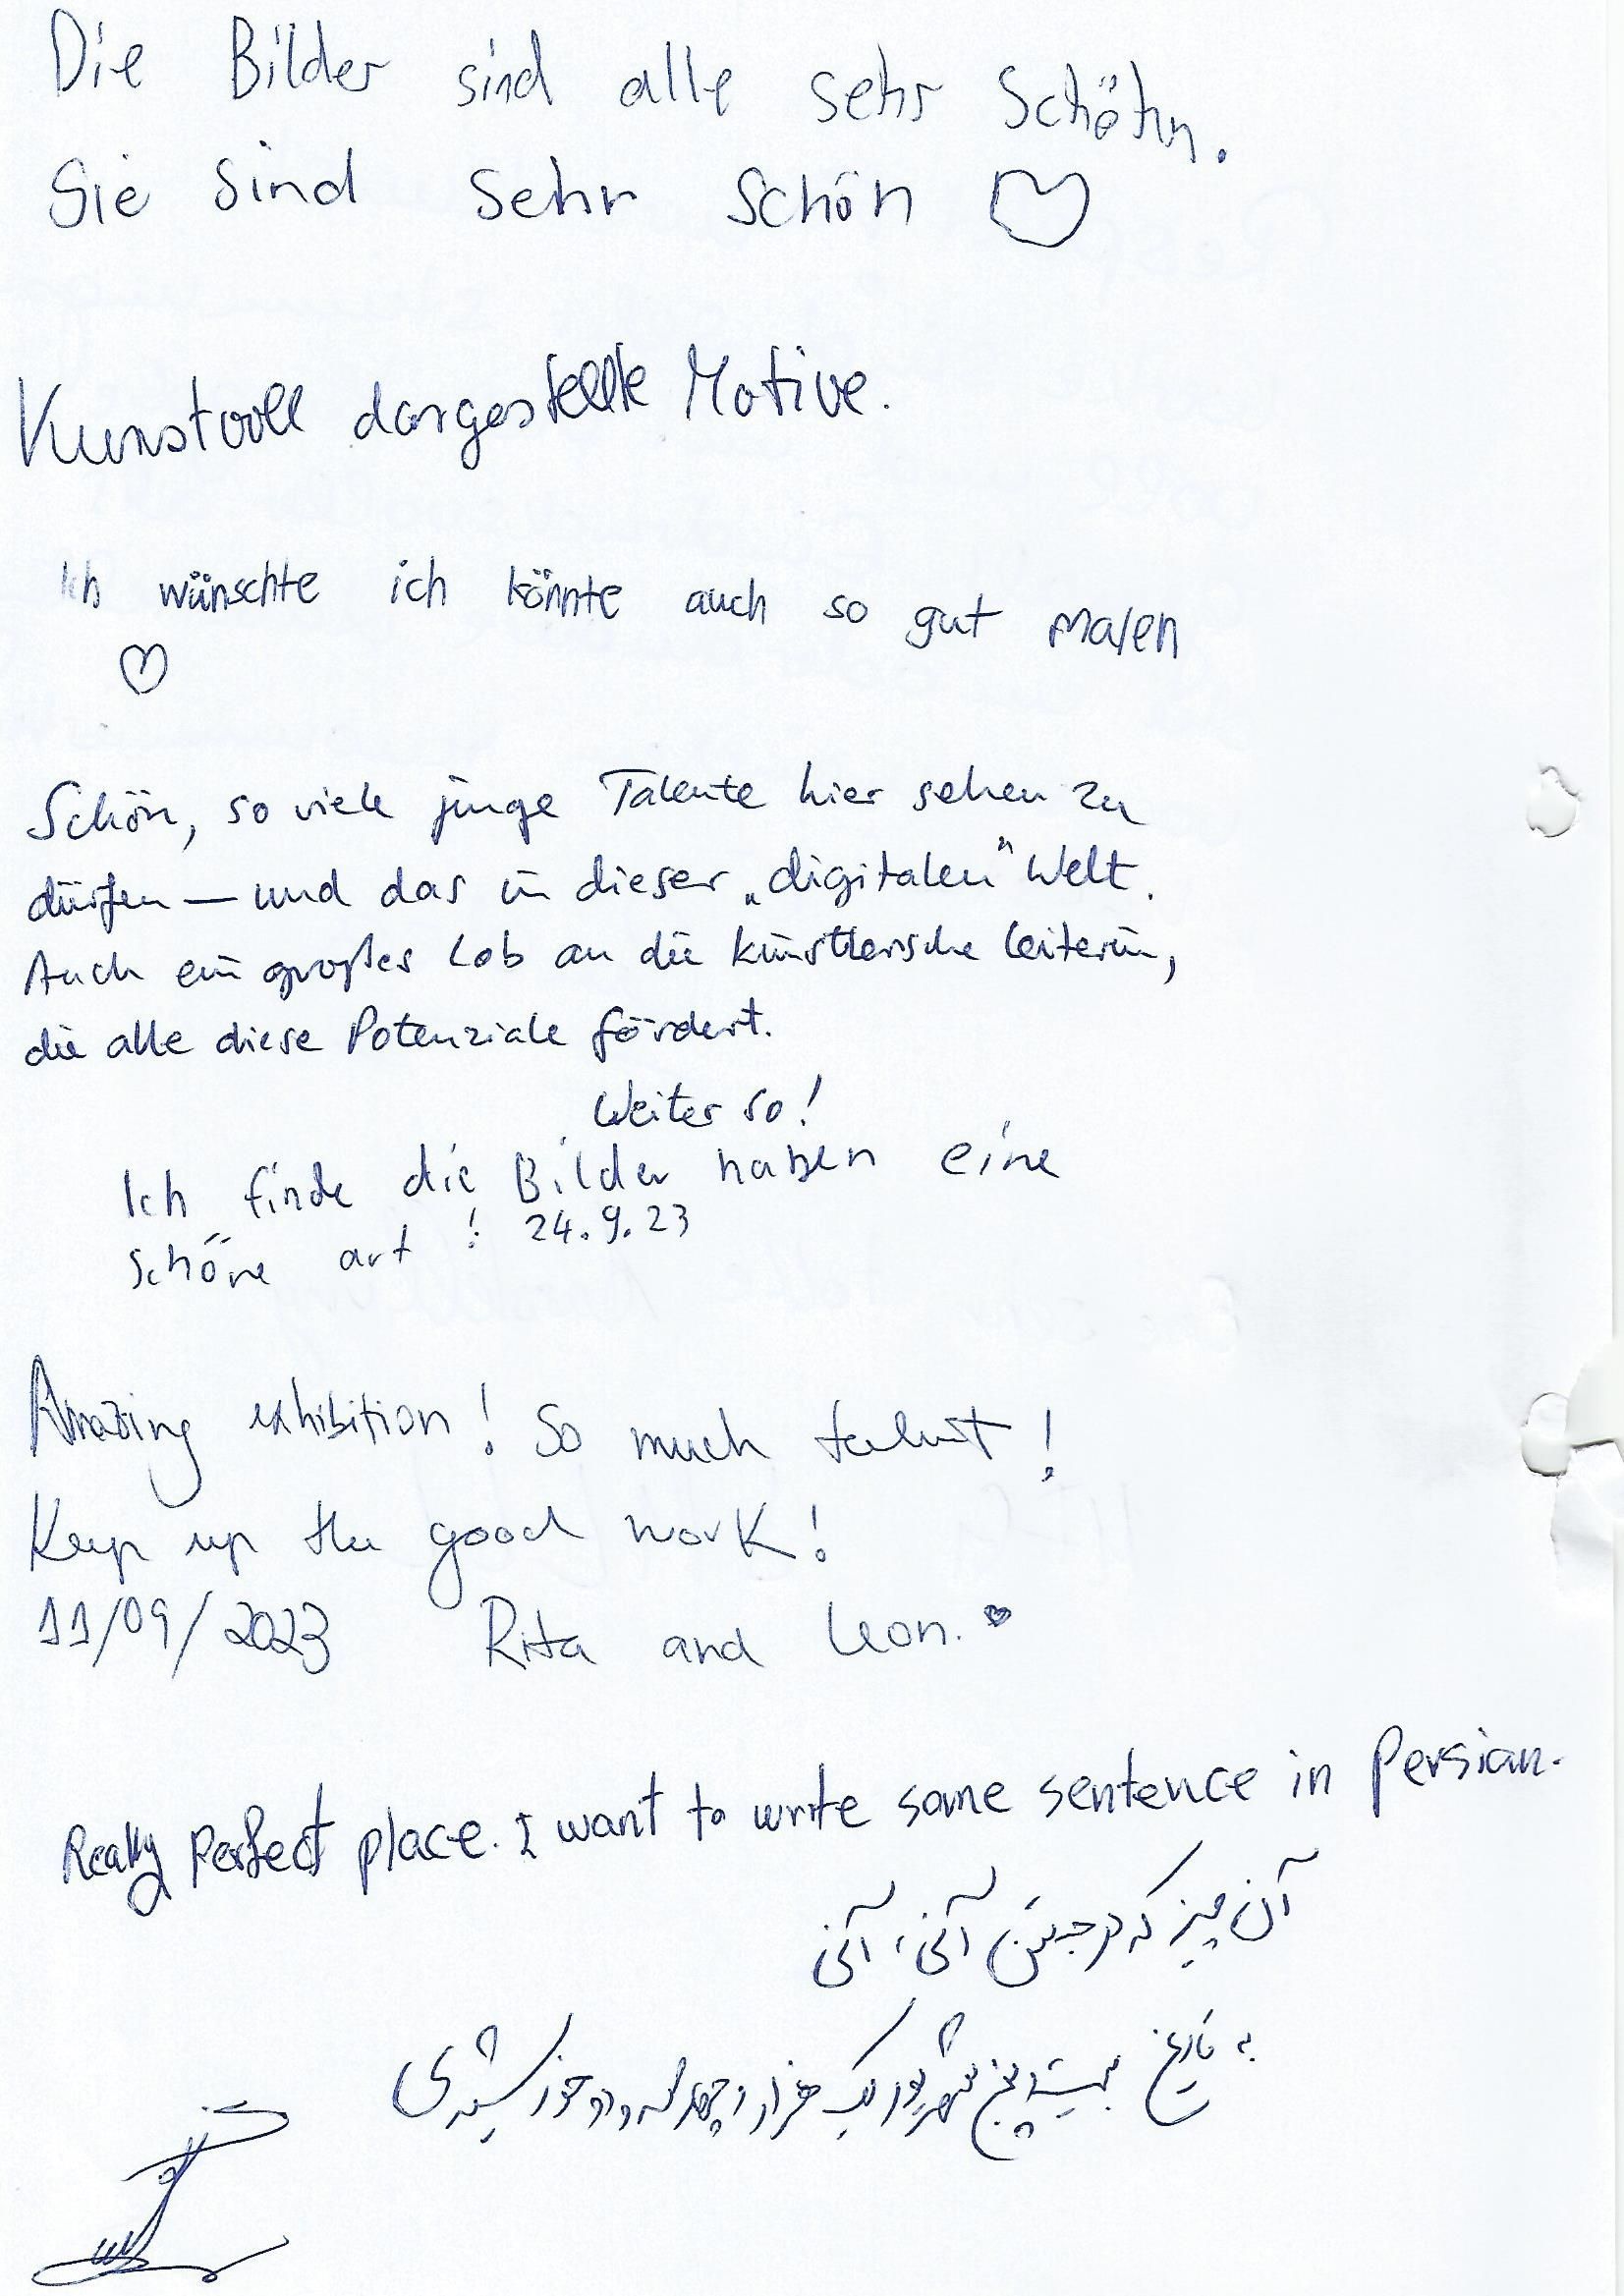 Die Bilder sind alle sehr Schöhn.
Sie sind sehr schön ♡
Kunstvoll dargestellte Motive.
Ich wünschte ich könnte auch so gut malen
♡
Schön, so viele junge Talente hier sehen zu
dürfen — und das in dieser „digitalen" Welt.
Auch ein großes Lob an die künstlerische Leiterin,
die alle diese Potenziale fördert.
Weiter so!
Ich finde die Bilder haben eine
schöne art ! 24.9.23
Amazing exhibition! So much talent!
Keep up the good work!
11/09/2023 Rita and Leon. ♥
Really Perfect place. I want to write some sentence in Persian.
آن چیز که در جستن آنی، آنی
به تاریخ بیست و پنج شهریور یک هزار و چهارصد و دو خورشیدی